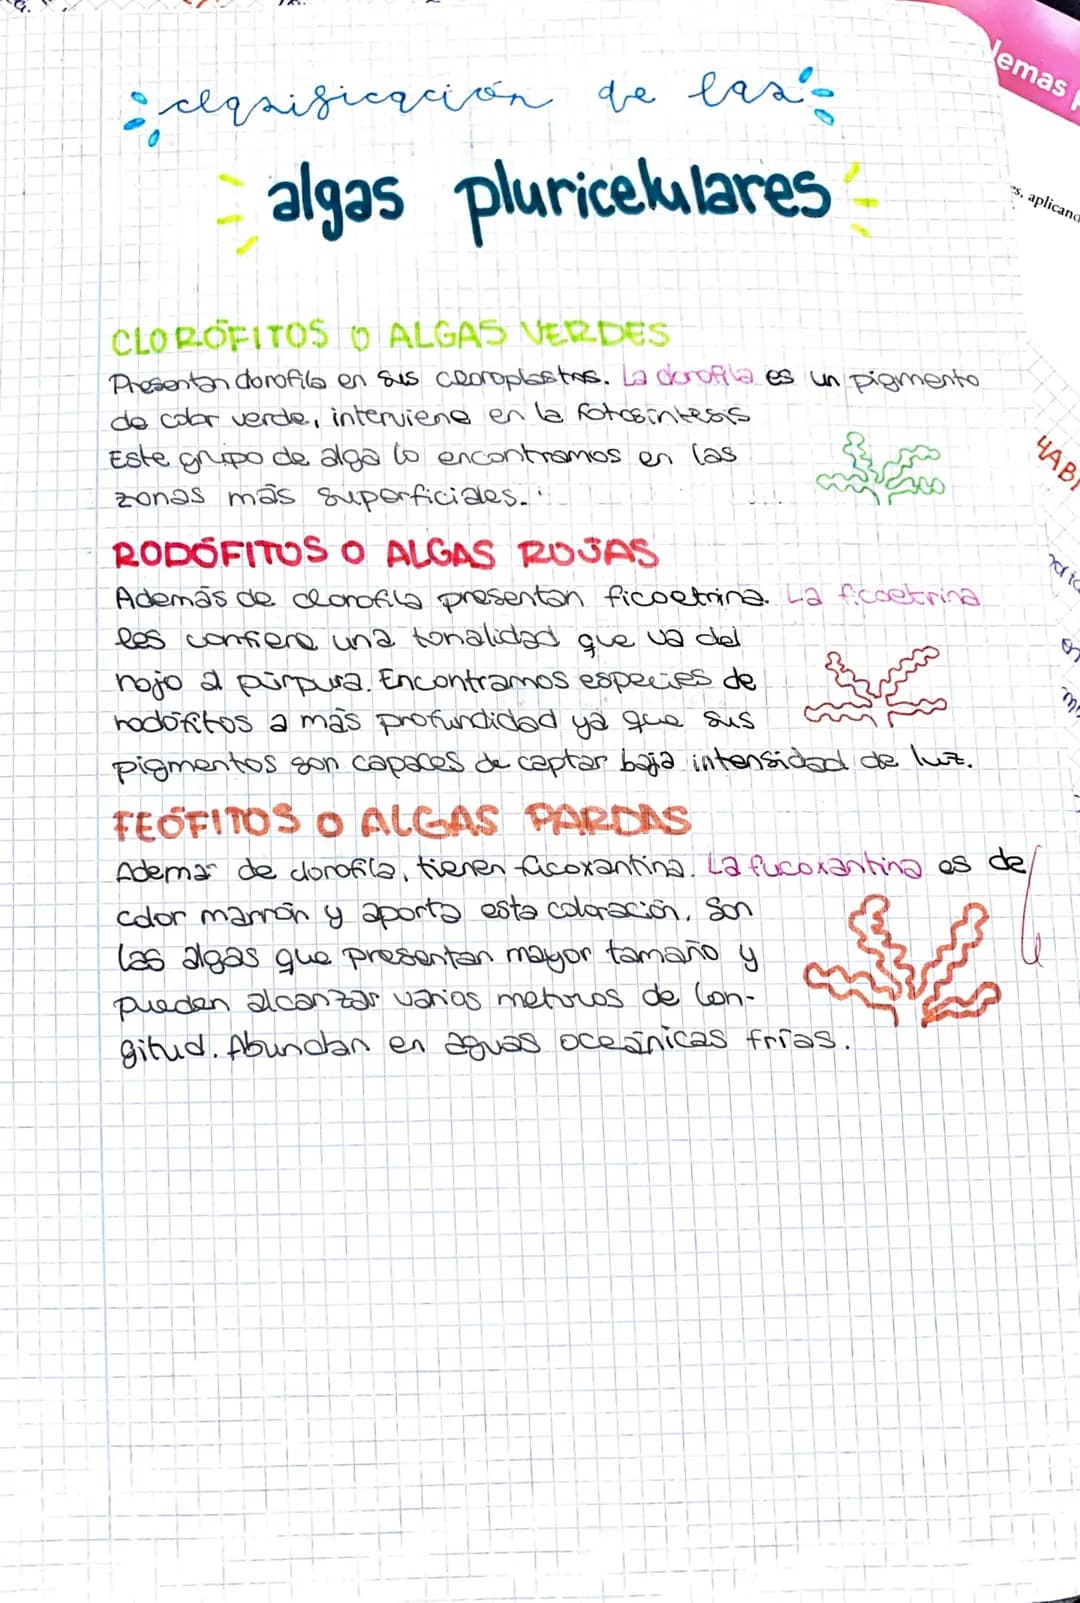 clasificación de las
algas pluricelulares
CLORÓFITOS O ALGAS VERDES
Presentan clorofila en sus cloroplastos. La clorofila es un pigmento
de color verde, interviene en la fotosíntesis
Este grupo de alga lo encontramos en las
zonas más superficiales.
RODÓFITOS O ALGAS ROJAS
Además de clorofila presentan ficoetrina. La ficoetrina
les confiere una tonalidad que va del
rojo al púrpura. Encontramos especies de
rodófitos a más profundidad ya que sus
pigmentos son capaces de captar baja intensidad de luz.
FEÓFITOS O ALGAS PARDAS
Ademar de clorofila, tienen fucoxantina. La fucoxantina es de
color marrón y aporta esta coloración. Son
las algas que presentan mayor tamaño y
pueden alcanzar varios metros de lon-
gitud. Abundan en aguas oceánicas frías.
lemas
es, aplicand